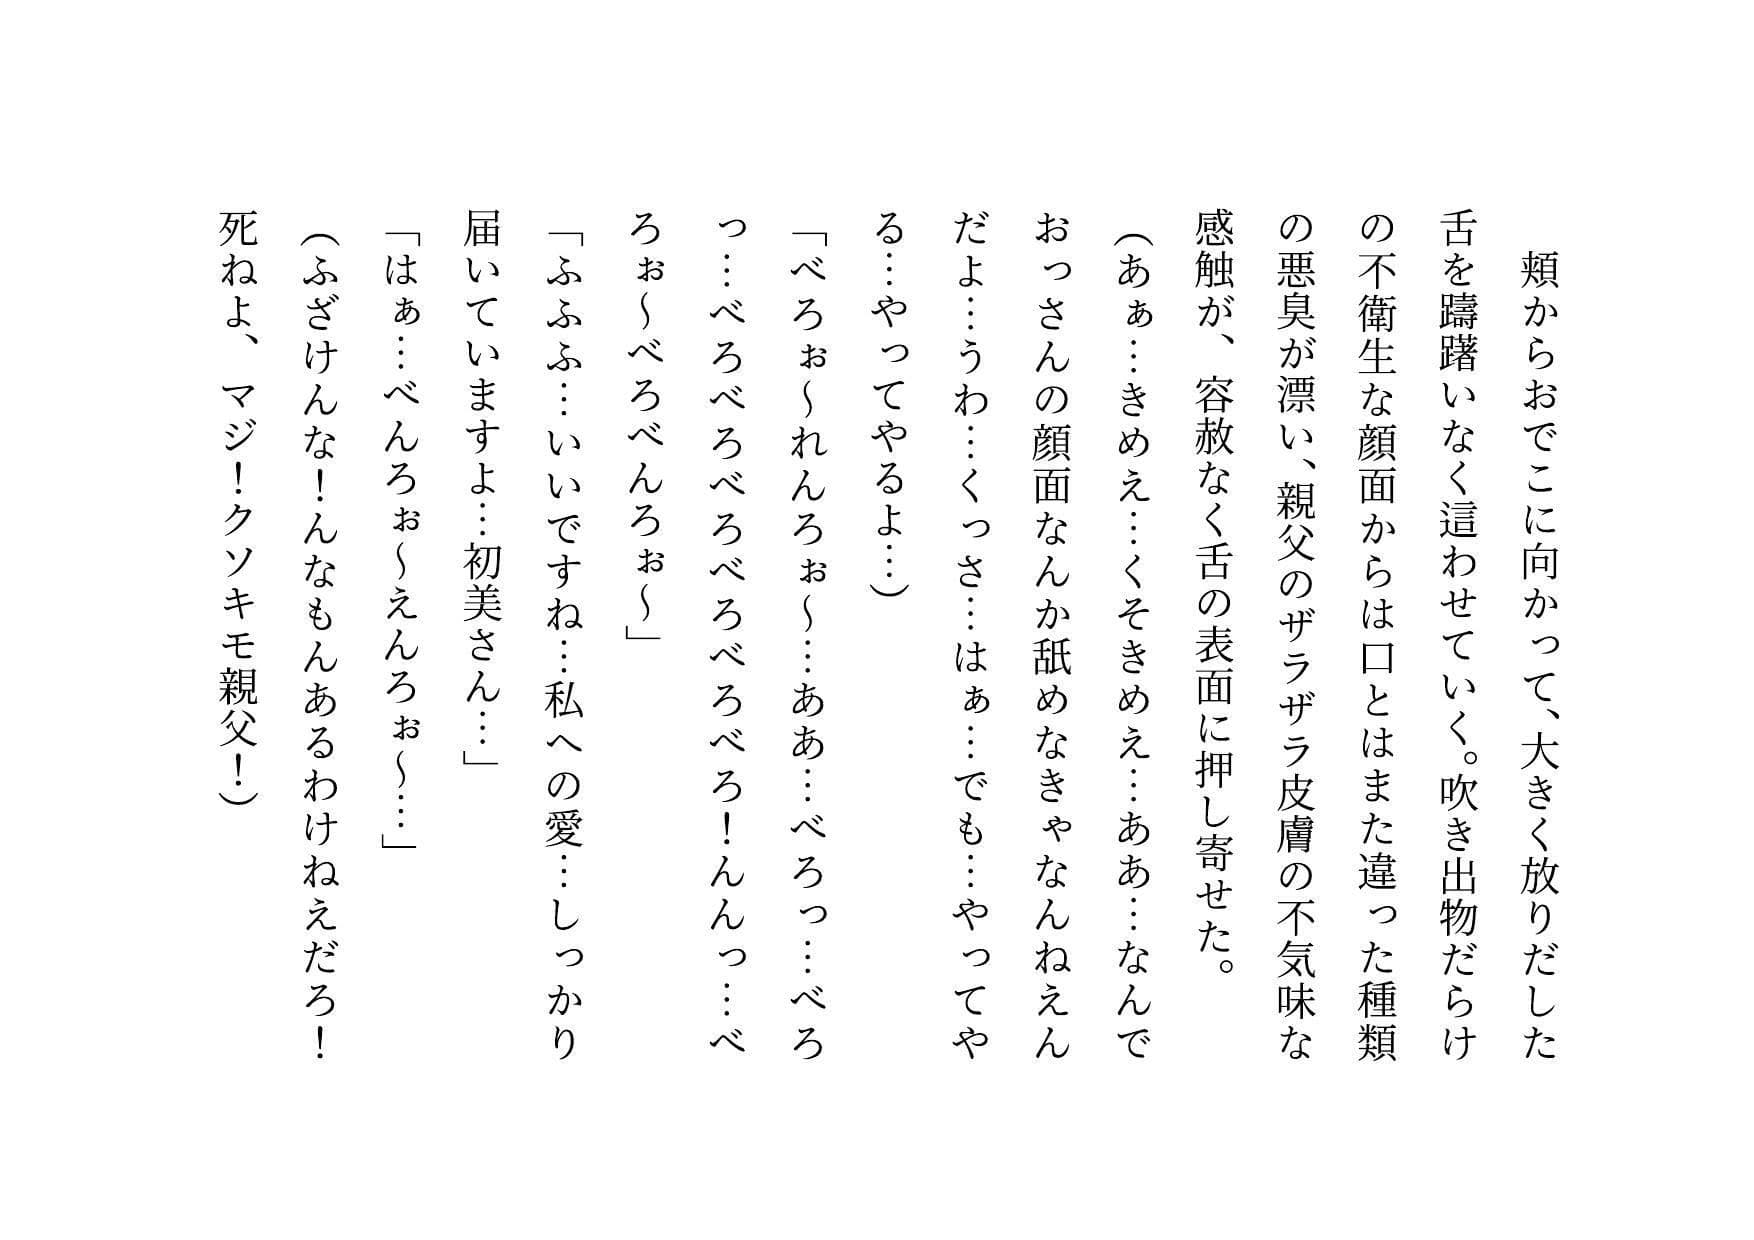 頬からおでこに向かって、大きく放りだした
舌を躊躇いなく這わせていく。吹き出物だらけ
の不衛生な顔面からは口とはまた違った種類
の悪臭が漂い、親父のザラザラ皮膚の不気味な
感触が、容赦なく舌の表面に押し寄せた。
（あぁ…きめえ…くそきめえ…ああ…なんで
おっさんの顔面なんか舐めなきゃなんねえん
だよ…うわ…くっさ…はぁ…でも…やってや
る…やってやるよ…）
「べろぉ～れんろぉ～…ああ…べろっ…べろ
っ…べろべろべろべろべろべろ！んんっ…べ
ろぉ～べろべんろぉ～」
「ふふふ…いいですね…私への愛…しっかり
届いていますよ…初美さん…」
「はぁ…べんろぉ～えんろぉ～…」
（ふざけんな！んなもんあるわけねえだろ！
死ねよ、マジ！クソキモ親父！）